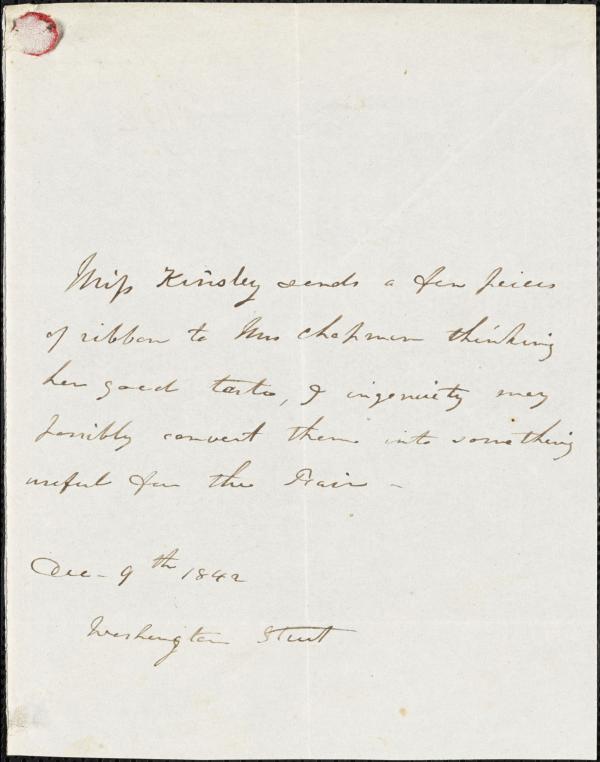 Miss Kinsley sends a few peices
of ribbon to Mrs Chapman thinking
her good taste, & ingenuity may
possibly convert them into something
useful for the Fair -
Dec - 9th 1842
Washington Street